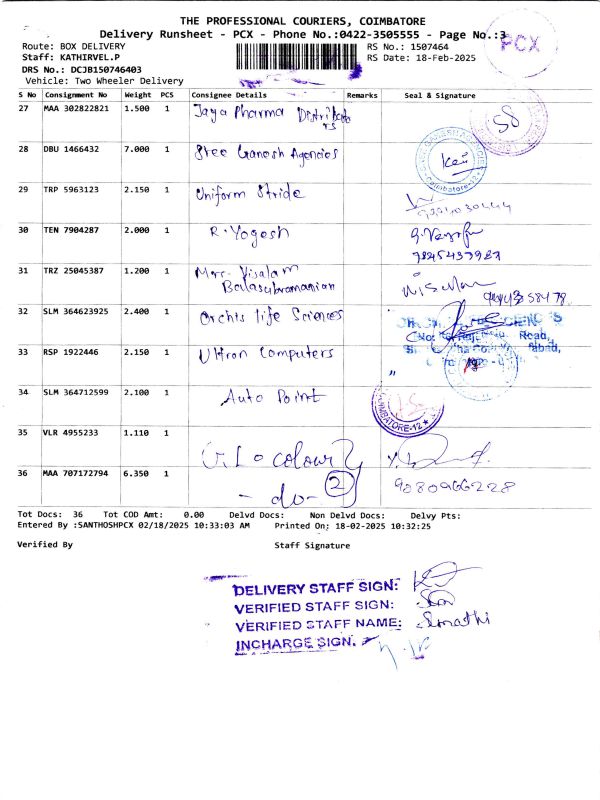 THE PROFESSIONAL COURIERS, COIMBATORE
Delivery Runsheet - PCX - Phone No.:0422-3505555 - Page No.:3
PCX
Route: BOX DELIVERY RS No.: 1507464
Staff: KATHIRVEL.P RS Date: 18-Feb-2025
DRS No.: DCJB150746403
Vehicle: Two Wheeler Delivery
S No Consignment No Weight PCS Consignee Details Remarks Seal & Signature
27 MAA 302822821 1.500 1 Jaya Pharma
28 DBU 1466432 7.000 1 Sree Ganesh Agencies
29 TRP 5963123 2.150 1 Uniform Stride
30 TEN 7904287 2.000 1 R. Yogesh
31 TRZ 25045387 1.200 1 Visalam
Balasubramanian
32 SLM 364623925 2.400 1 Orchis Life Sciences
33 RSP 1922446 2.150 1 Ultron Computers
Road,
34 SLM 364712599 2.100 1 Auto Point
COIMBATORE-12
35 VLR 4955233 1.110 1
36 MAA 707172794 6.350 1 - do - 2 9080966228
Tot Docs: 36 Tot COD Amt: 0.00 Delvd Docs: Non Delvd Docs: Delvy Pts:
Entered By :SANTHOSHPCX 02/18/2025 10:33:03 AM Printed On: 18-02-2025 10:32:25
Verified By Staff Signature
DELIVERY STAFF SIGN:
VERIFIED STAFF SIGN:
VERIFIED STAFF NAME:
INCHARGE SIGN.